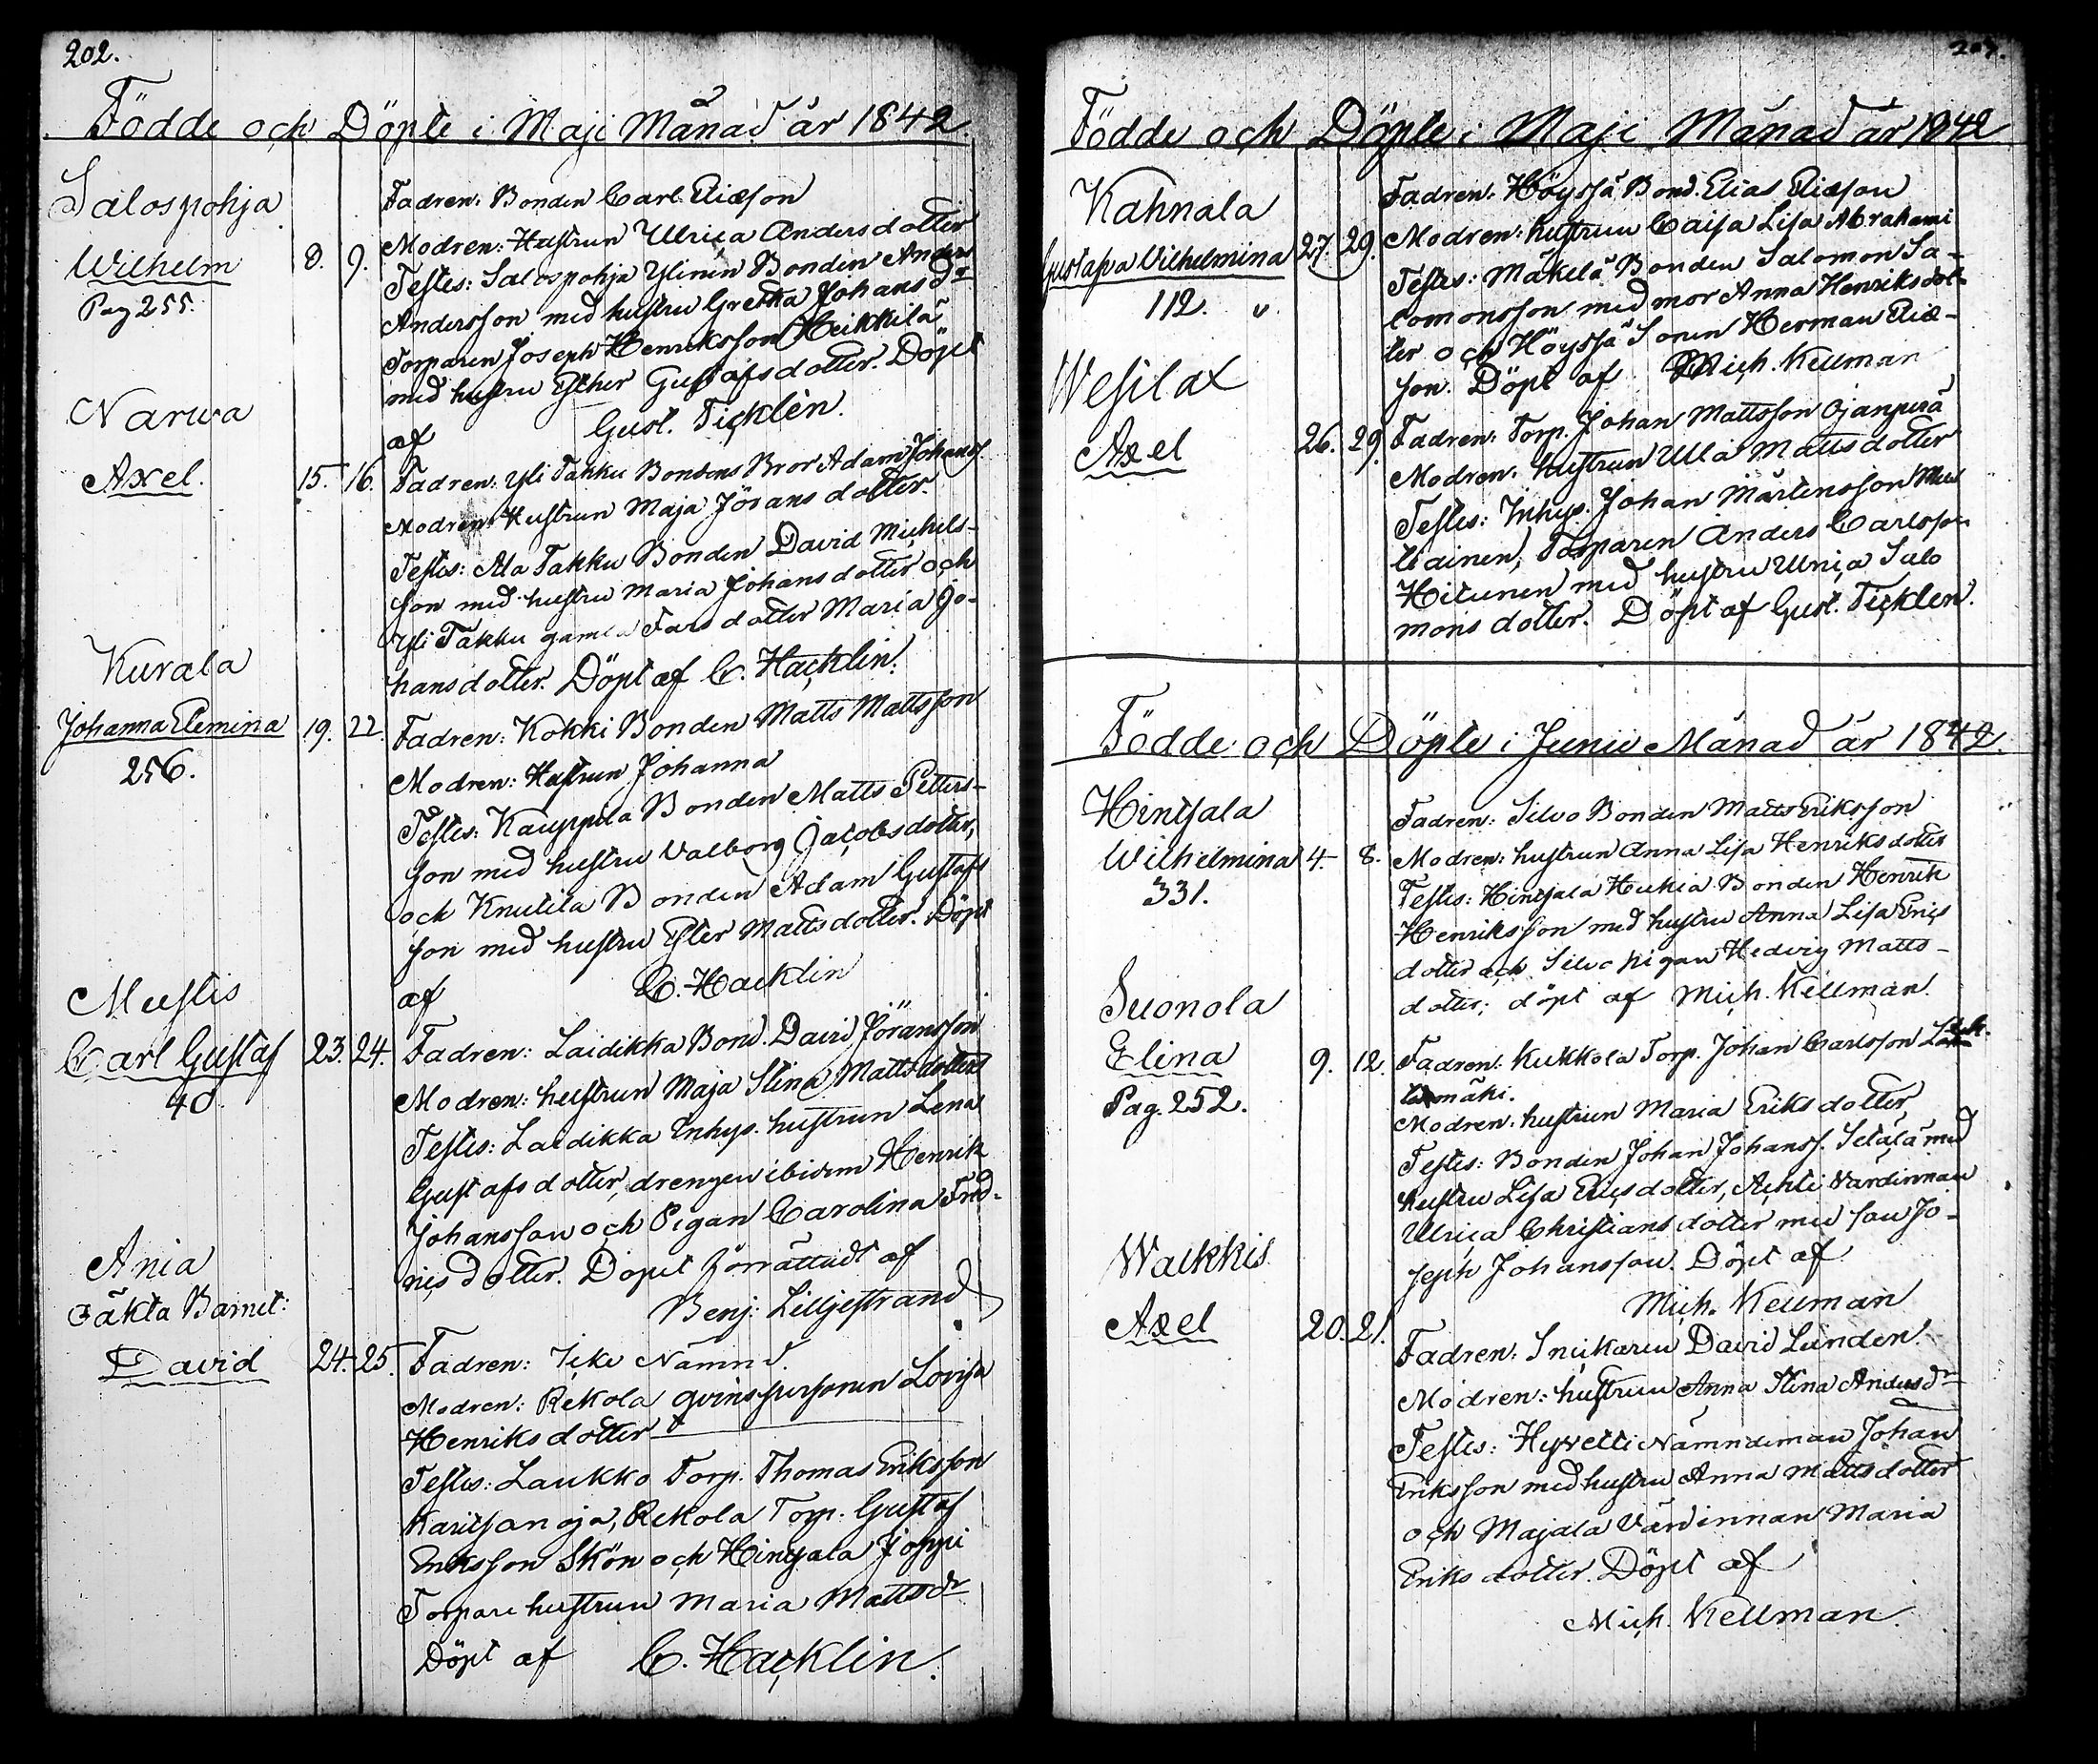 202.
Födde och Döpte i Maji Månad år 1842
Salospohja
Wilhelm 8. 9.
Pag 255.
Fadren: Bonden Carl Eliæson
Modren: Hustrun Ulrica Andersdotter
Testes: Salospohja Ylinen Bonden Anders
Andersson med hustru Gretha Johansdr
Torparen Joseph Henriksson Heikkilä
med hustru Esther Gustafsdotter. Döpt
af Gust. Ticklén.
Narwa
Axel. 15. 16.
Fadren: Yli Takku Bondens Bror Adam Johanss
Modren: Hustrun Maja Jöransdotter.
Testes: Ala Takku Bonden David Michels-
son med hustru Maria Johansdotter och
Yli Takku gamla Fars dotter Maria Jo-
hansdotter. Döpt af C. Hacklin.
Kurala
Johanna Elemina 19. 22.
256.
Fadren: Kokki Bonden Matts Mattsson
Modren: Hustrun Johanna
Testes: Kauppila Bonden Matts Petters-
son med hustru Valborg Jacobsdotter,
och Knutila Bonden Adam Gustafs
son med hustru Ester Mattsdotter. Döpt
af C. Hacklin
Mustis
Carl Gustaf 23. 24.
40.
Fadren: Laidikka Bond. David Jöransson
Modren: hustrun Maja Stina Mattsdotter
Testes: Laidikka Inhys. hustrun Lena
Gustafsdotter, drengen ibidem Henrik
Johansson och Pigan Carolina Fred-
ricsdotter. Dopet förrättadt af
Benj: Lilljestrand
Ania
Oäkta Barnet:
David 24. 25.
Fadren: Icke Nämnd.
Modren: Rekola qvinspersonen Lovisa
Henriksdotter
Testes: Laukko Torp. Thomas Eriksson
Karitsanoja, Rekola Torp. Gustaf
Eriksson Skön och Hinsala Joppi
Torpare hustrun Maria Mattsdr
Döpt af C. Hacklin.
Födde och Döpte i Maji Månad år 1842
Kahnala
Gustafva Vilhelmina 27. 29.
112. "
Fadren: Höyssä Bond. Elias Eliæson
Modren: hustrun Caisa Lisa Abrahami
Testes: Mäkelä Bonden Salomon Sa-
lomonsson med mor Anna Henriksdot-
ter och Höyssä Sonen Herman Eliæ-
son. Döpt af Mich. Kellman
Wesilax
Axel 26. 29.
Fadren: Torp. Johan Mattsson Ojanperä
Modren: hustrun Ulla Mattsdotter
Testes: Inhys. Johan Mårtensson
Torparen Anders Carlsson
Hitunen med hustru Ulrica Salo
monsdotter. Döpt af Gust. Ticklen.
Födde och Döpte i Junii Månad år 1842.
Hinsala
Wilhelmina 4. 8.
331.
Fadren: Silvo Bonden Matts Eriksson
Modren: hustrun Anna Lisa Henriksdotter
Testes: Hinsala Bonden Henrik
Henriksson med hustru Anna Lisa Erics
dotter och Silvo pigan Hedvig Matts-
dotter; döpt af Mich. Kellman.
Suonola
Elina 9. 12.
Pag. 252.
Fadren: Kukkola Torp. Johan Carlsson
mäki.
Modren: hustrun Maria Eriksdotter
Testes: Bonden Johan Johanss. Setälä med
hustru Lisa Ericsdotter, Ahti Värdinnan
Ulrica Christiansdotter med son Jo-
seph Johansson. Döpt af
Mich. Kellman
Walkkis
Axel 20. 21.
Fadren: Snickaren David Lunden.
Modren: hustrun Anna Stina Andersdr
Testes: Hyvetti Nämndeman Johan
Eriksson med hustru Anna Mattsdotter
och Majala Värdinnan Maria
Eriksdotter. Döpt af
Mich. Kellman.